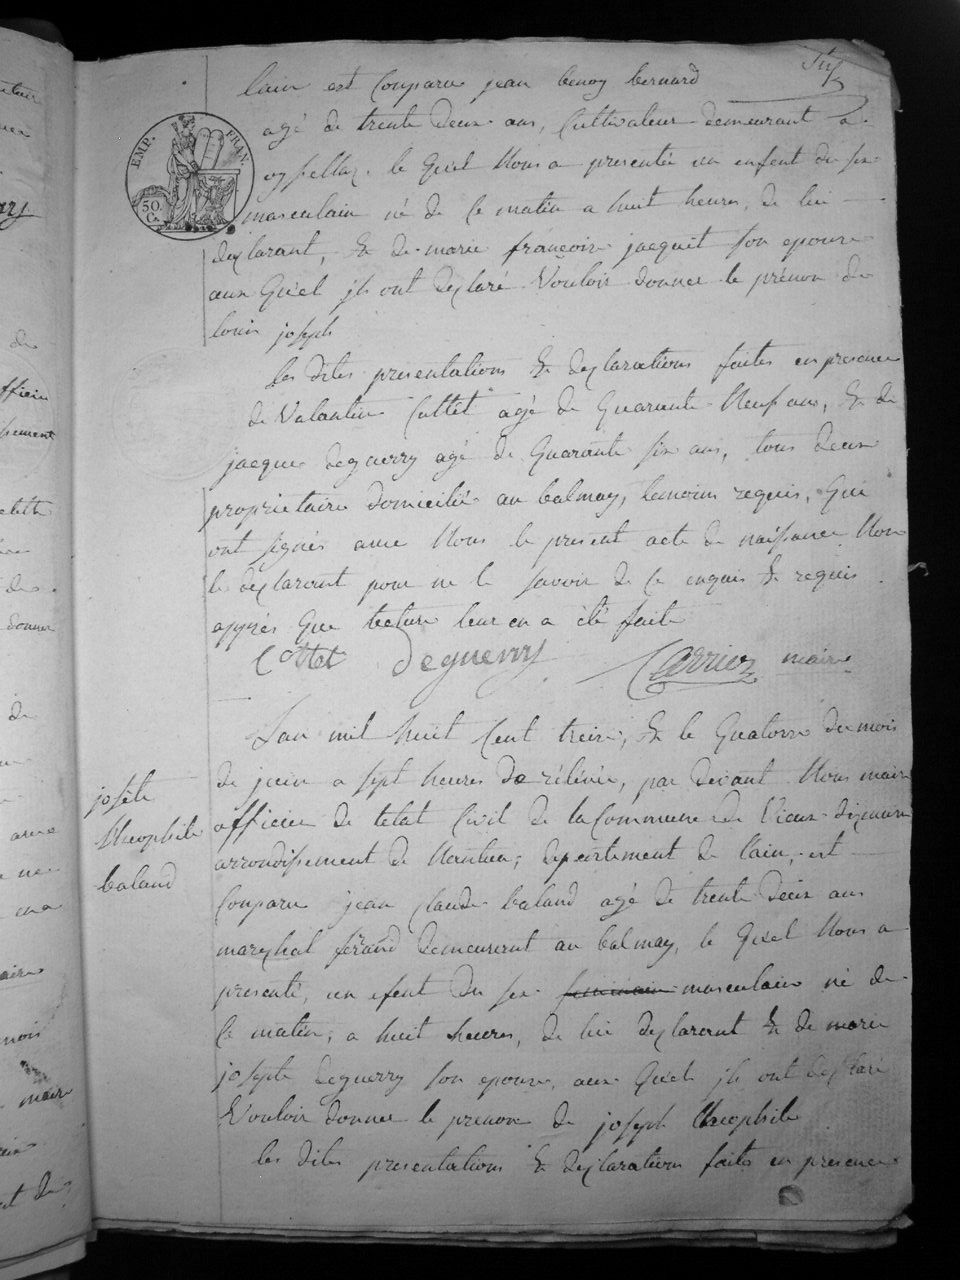 lain est Comparu jean benoy bernard
agé de trente Deux ans, Cultivateur demeurant a
oyssellaz, le Quel Nous a presenté un enfent du sex
EMP. FRAN.
50. C.
masculain né de Ce matin a huit heures, de lui
declarant, & de marie françoise jacquit son epouse
aux Quel jls ont declaré Vouloir donner le prénon de
louis joseph
les dites presentations & declarations faites en presence
de Valantin Cottet agé de Quarante Neuf ans, & de
jacque deguerry agé de Quarante six ans, tous deux
proprietaire domicilié au balmay, temoins requis, Qui
ont signés avec Nous le present acte de naissance Non
le declarant pour ne le savoir de Ce enquis & requis
apprés Que lecture leur en a été faite
Cottet Deguerry Carrier maire
L'an mil huit Cent treize, & le Quatorze du mois
de juin a sept heures de rélévée, par devant Nous maire
officier de l'etat Civil de la Commune de Vieux dizenave
arrondissement de Nantua, departement de l'ain, est
Comparu jean claude baland agé de trente deux ans
marechal ferand demeurent au balmay, le Quel Nous a
presenté, un efent du sex feminain masculain né de
Ce matin, a huit heures, de lui declarent & de marie
joseph deguerry son epouse, aux Quels jls ont declaré
Vouloir donner le prenon de joseph theophile
les dites presentations & declarations faites en presence
joseph
theophile
baland